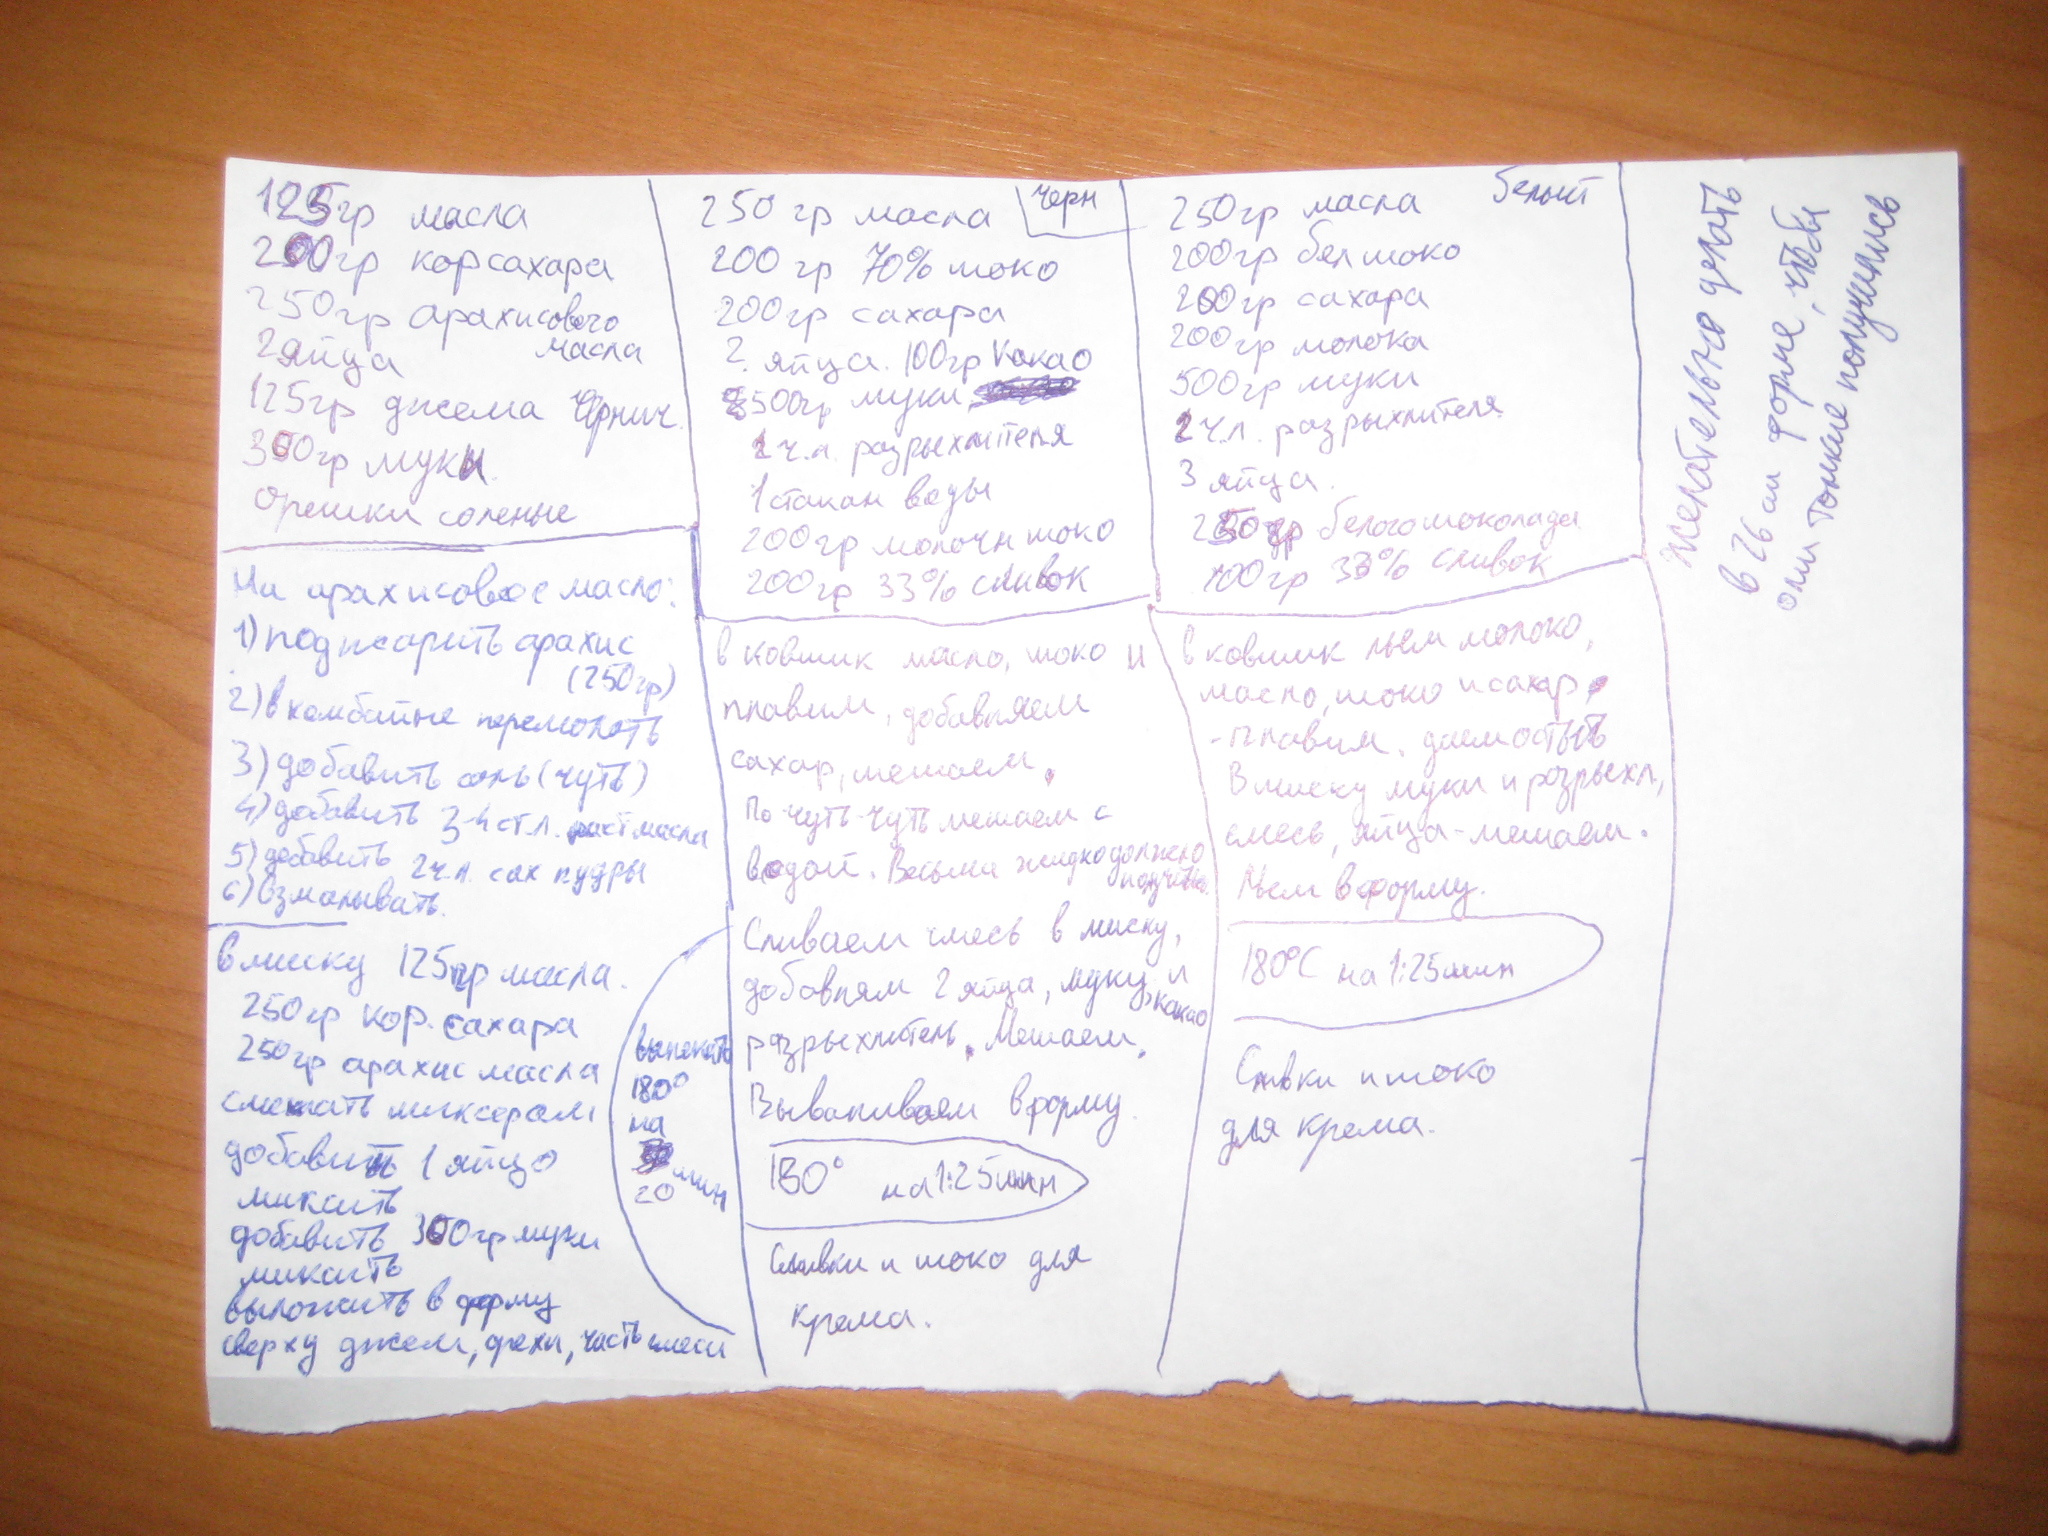 125гр масла
200гр кор сахара
250гр арахисового
масла
2 яйца
125гр джема чернич.
300гр муки.
орешки соленые
На арахисовое масло:
1) поджарить арахис
(250гр)
2) в комбайне перемолоть
3) добавить соль (чуть)
4) добавить 3-4 ст.л. раст масла
5) добавить 2 ч.л. сах пудры
6) взмалывать.
В миску 125гр масла.
250гр кор. сахара
250гр арахис масла
смешать миксером
добавить 1 яйцо
миксить
добавить 300гр муки
миксить
выложить в форму
сверху джем, орехи, часть смеси
выпекать
180°
на
20 мин
черн
250 гр масла
200 гр 70% шоко
200гр сахара
2 яйца. 100гр какао
500гр муки
2 ч.л. разрыхлителя
1 стакан воды
200гр молочн шоко
200гр 33% сливок
в ковшик масло, шоко и
плавим, добавляем
сахар, мешаем.
По чуть-чуть мешаем с
водой. Весьма жидко должно
получиться.
Сливаем смесь в миску,
добавлям 2 яйца, муку и
какао
разрыхлитель. Мешаем.
Вываливаем в форму.
180° на 1:25мин
Сливки и шоко для
крема.
белый
250гр масла
200гр бел шоко
200гр сахара
200гр молока
500гр муки
2 ч.л. разрыхлителя
3 яйца.
250гр белого шоколада
100гр 33% сливок
в ковшик льем молоко,
масло, шоко и сахар
- плавим. даем остыть
В миску муки и разрыхл,
смесь, яйца - мешаем.
Льем в форму.
180°С на 1:25мин
Сливки и шоко
для крема.
Желательно делать
в 26 см форме, чтобы
они тонкие получились